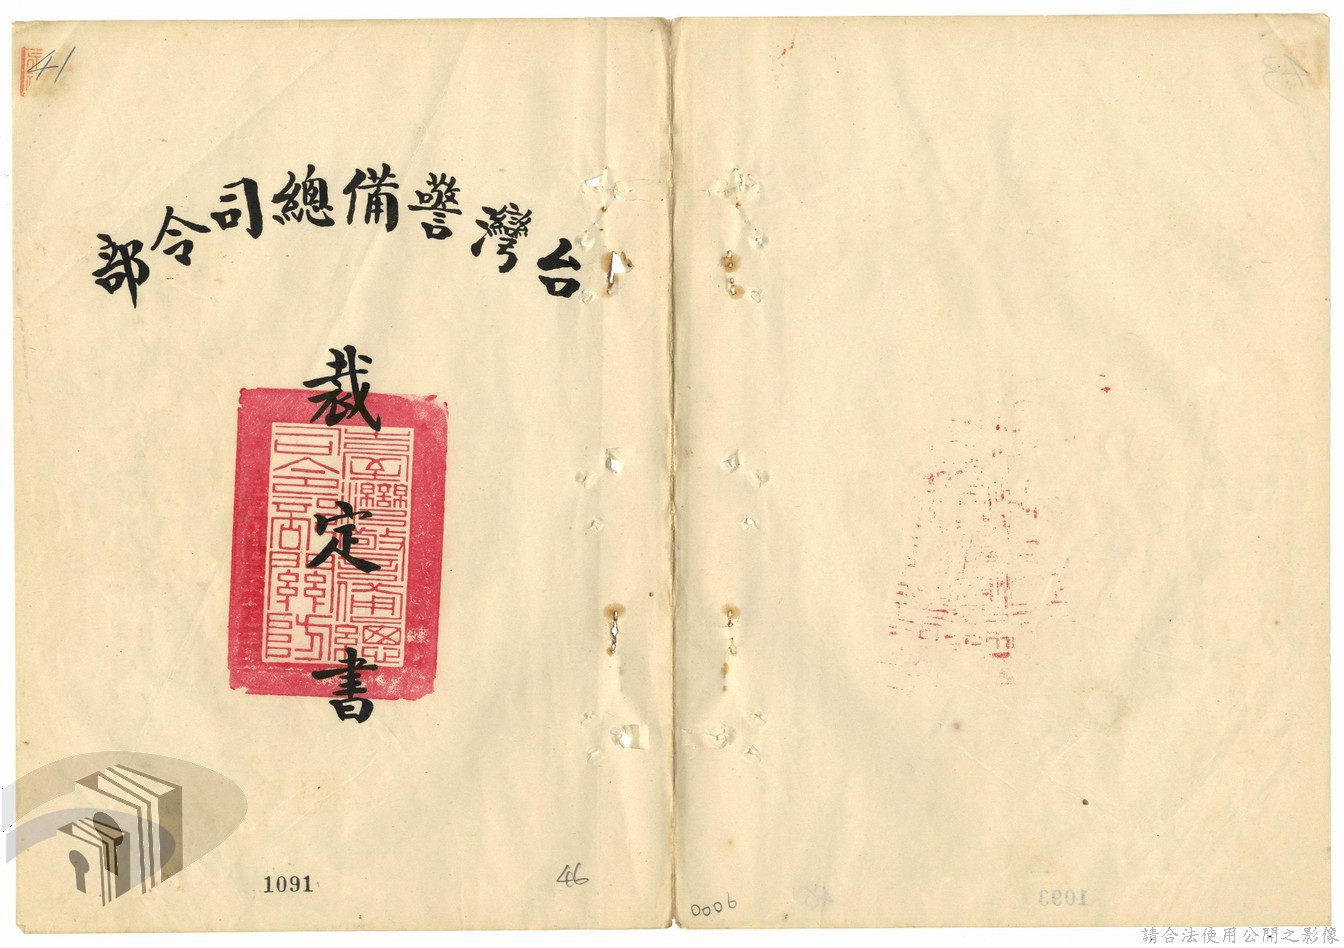 41
台灣警備總司令部
裁定書
臺灣警備總
司令部關防
1091
46
0006
1093
請合法使用公開之影像